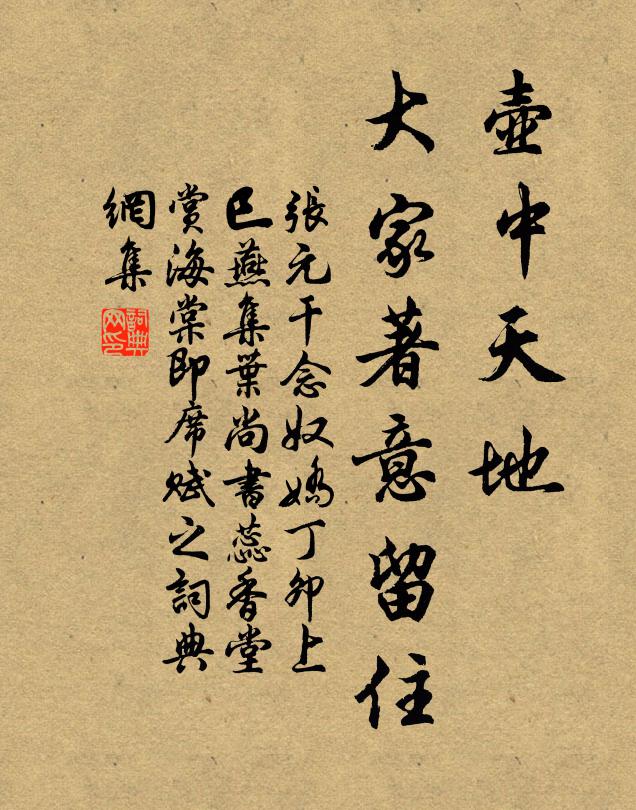 壺中天地
大家著意留住
張元干念奴嬌丁卯上
巳燕集葉尚書蕊香堂
賞海棠即席賦之詞典
網集
詞典
网印